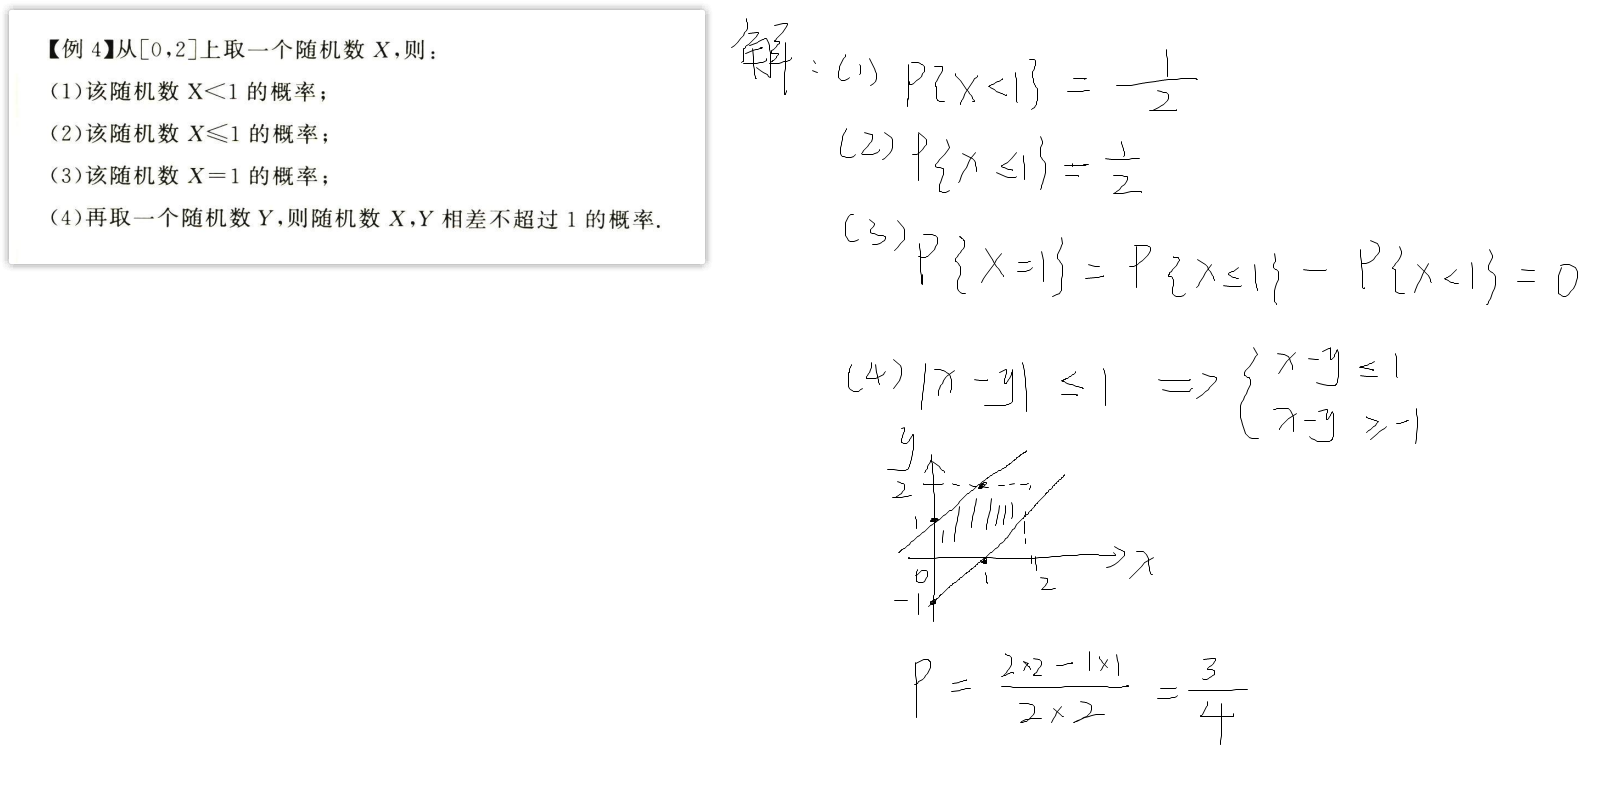 【例 4】从[0,2]上取一个随机数 X,则:
(1)该随机数 X<1 的概率;
(2)该随机数 X≤1 的概率;
(3)该随机数 X=1 的概率;
(4)再取一个随机数 Y,则随机数 X,Y 相差不超过 1 的概率.
解:(1) P{X<1} = 1/2
(2) P{X≤1} = 1/2
(3) P{X=1} = P{X≤1} - P{X<1} = 0
(4) |x-y| ≤ 1 => { x-y ≤ 1
x-y ≥ -1
y
2
1
0 1 2 x
-1
P = (2×2-1×1)/(2×2) = 3/4